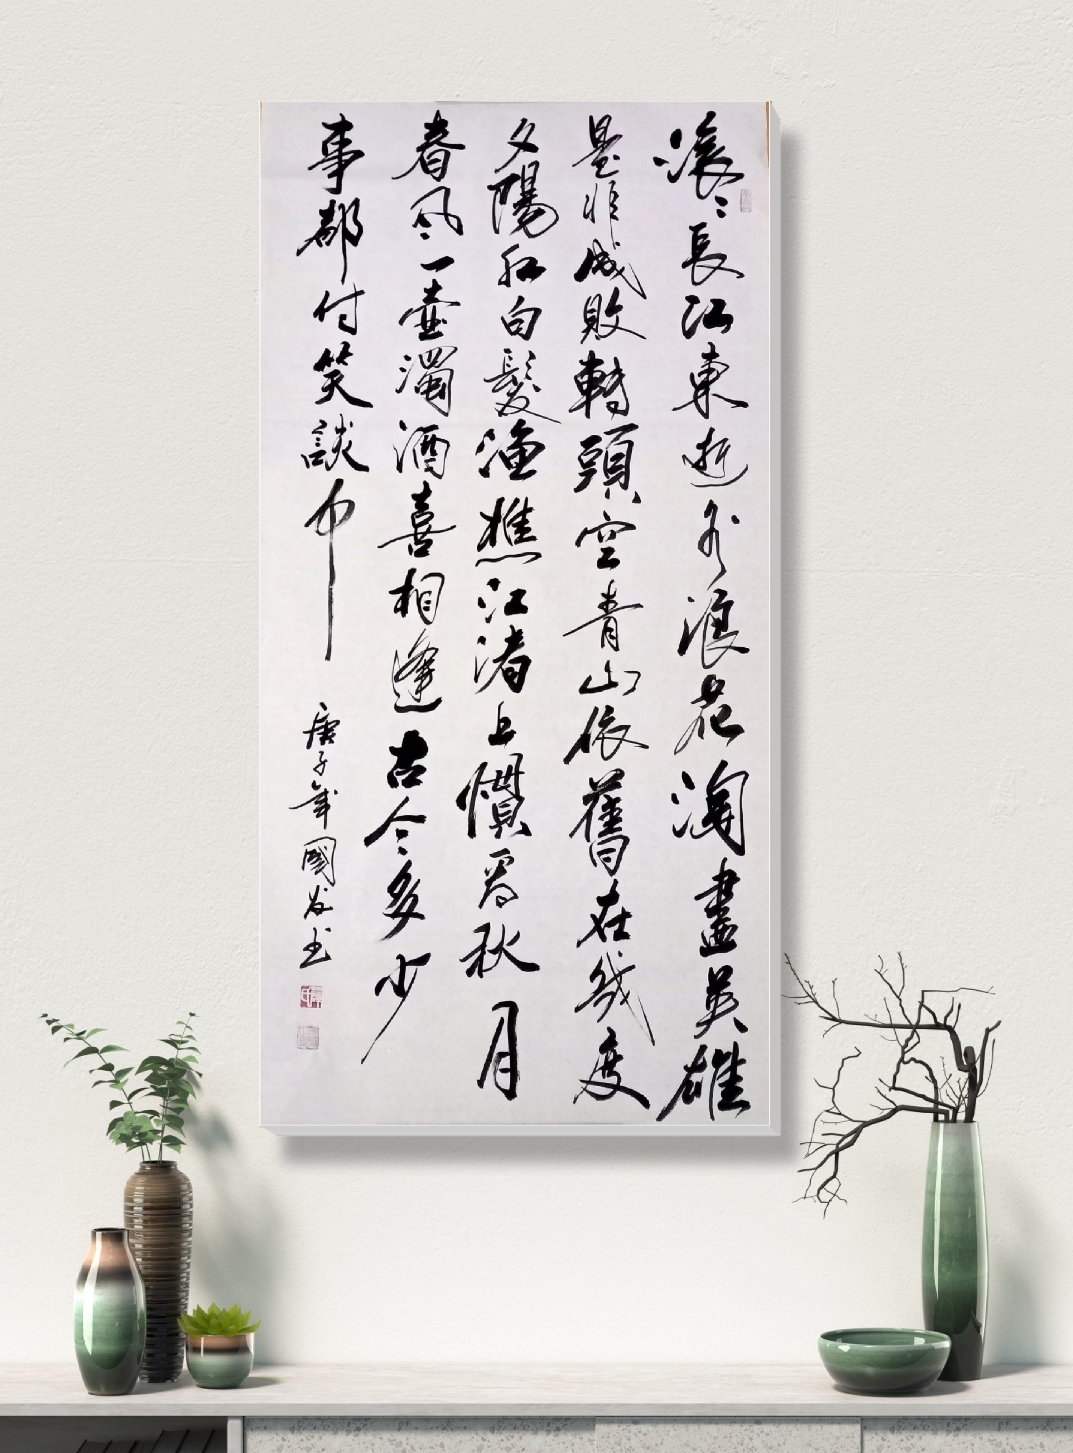 滚〻長江東逝水浪花淘盡英雄
是非成敗轉頭空青山依舊在幾度
夕陽紅白髮漁樵江渚上慣看秋月
春風一壺濁酒喜相逢古今多少
事都付笑談中
庚子年國發書